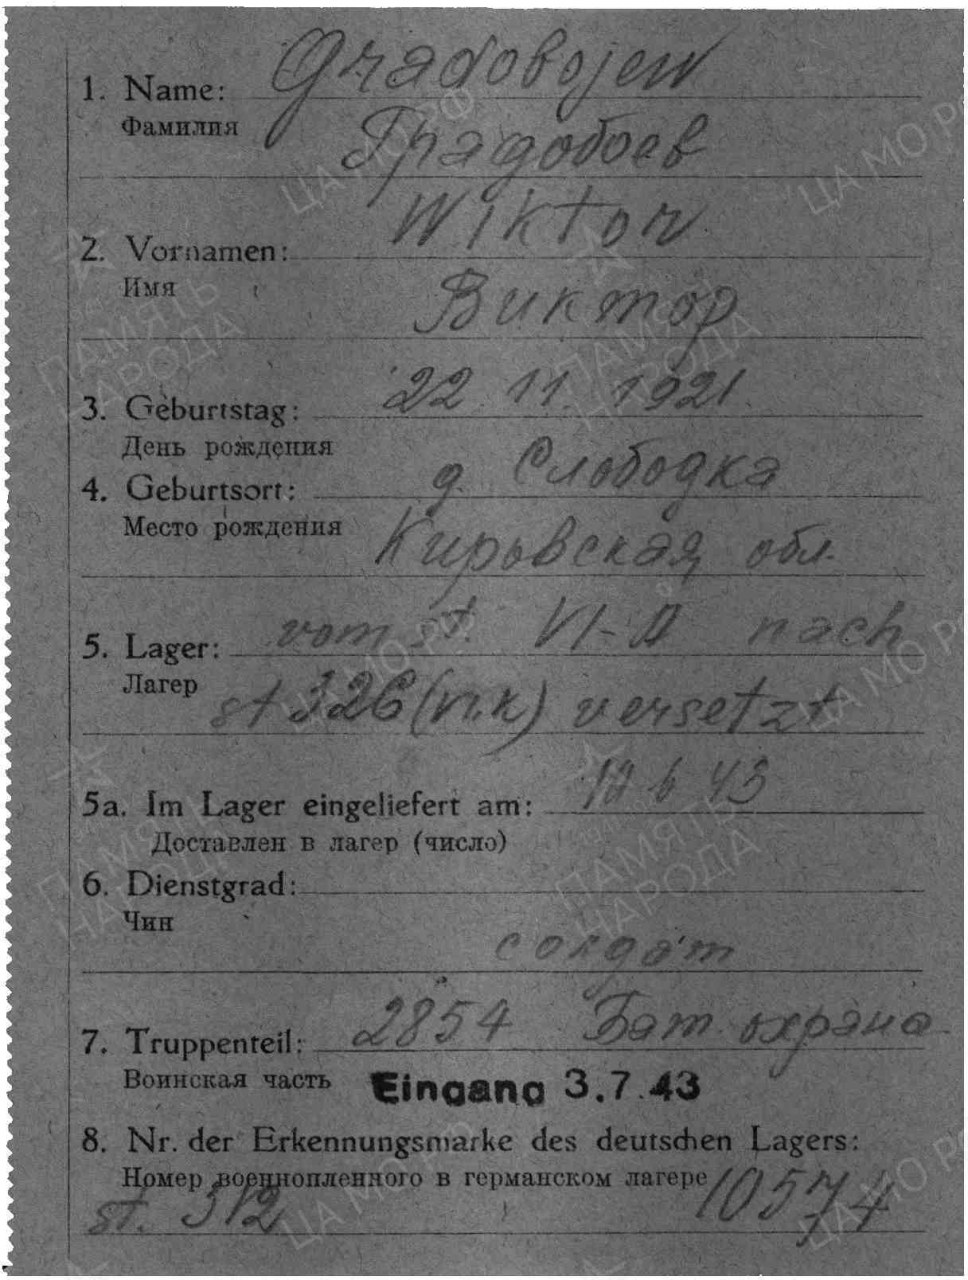 1. Name: Gradobojew
Фамилия Градобоев
2. Vornamen: Wiktor
Имя Виктор
3. Geburtstag: 22 11. 1921
День рождения
4. Geburtsort: д. Слободка
Место рождения Кировская обл.
5. Lager: vom st. VI-D nach
Лагер st 326 (VI.K) versetzt
5a. Im Lager eingeliefert am: 43
Доставлен в лагер (число)
6. Dienstgrad:
Чин солдат
7. Truppenteil: 2854 Бат охрана
Воинская часть Eingang 3.7.43
8. Nr. der Erkennungsmarke des deutschen Lagers:
Номер военнопленного в германском лагере 10574
st. 312
ЦА МО РФ
ПАМЯТЬ
НАРОДА